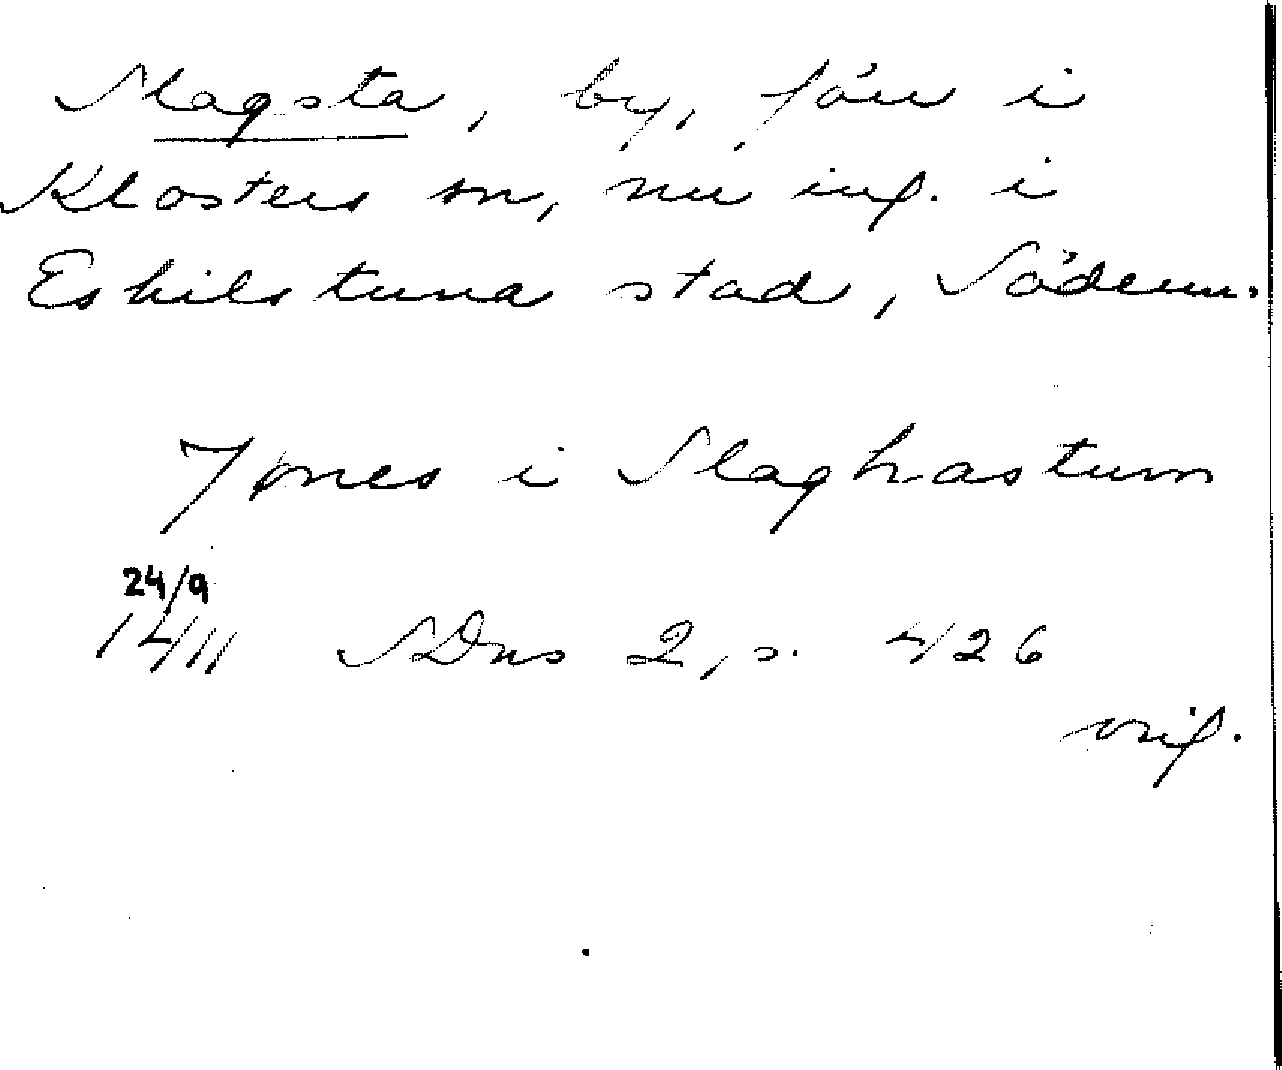 Slagsta, by, förr i
Klosters sn, nu inf. i
Eskilstuna stad, Söderm.
Jønes i Slaghastum
24/9
1411 SDns 2, s. 426
orig.